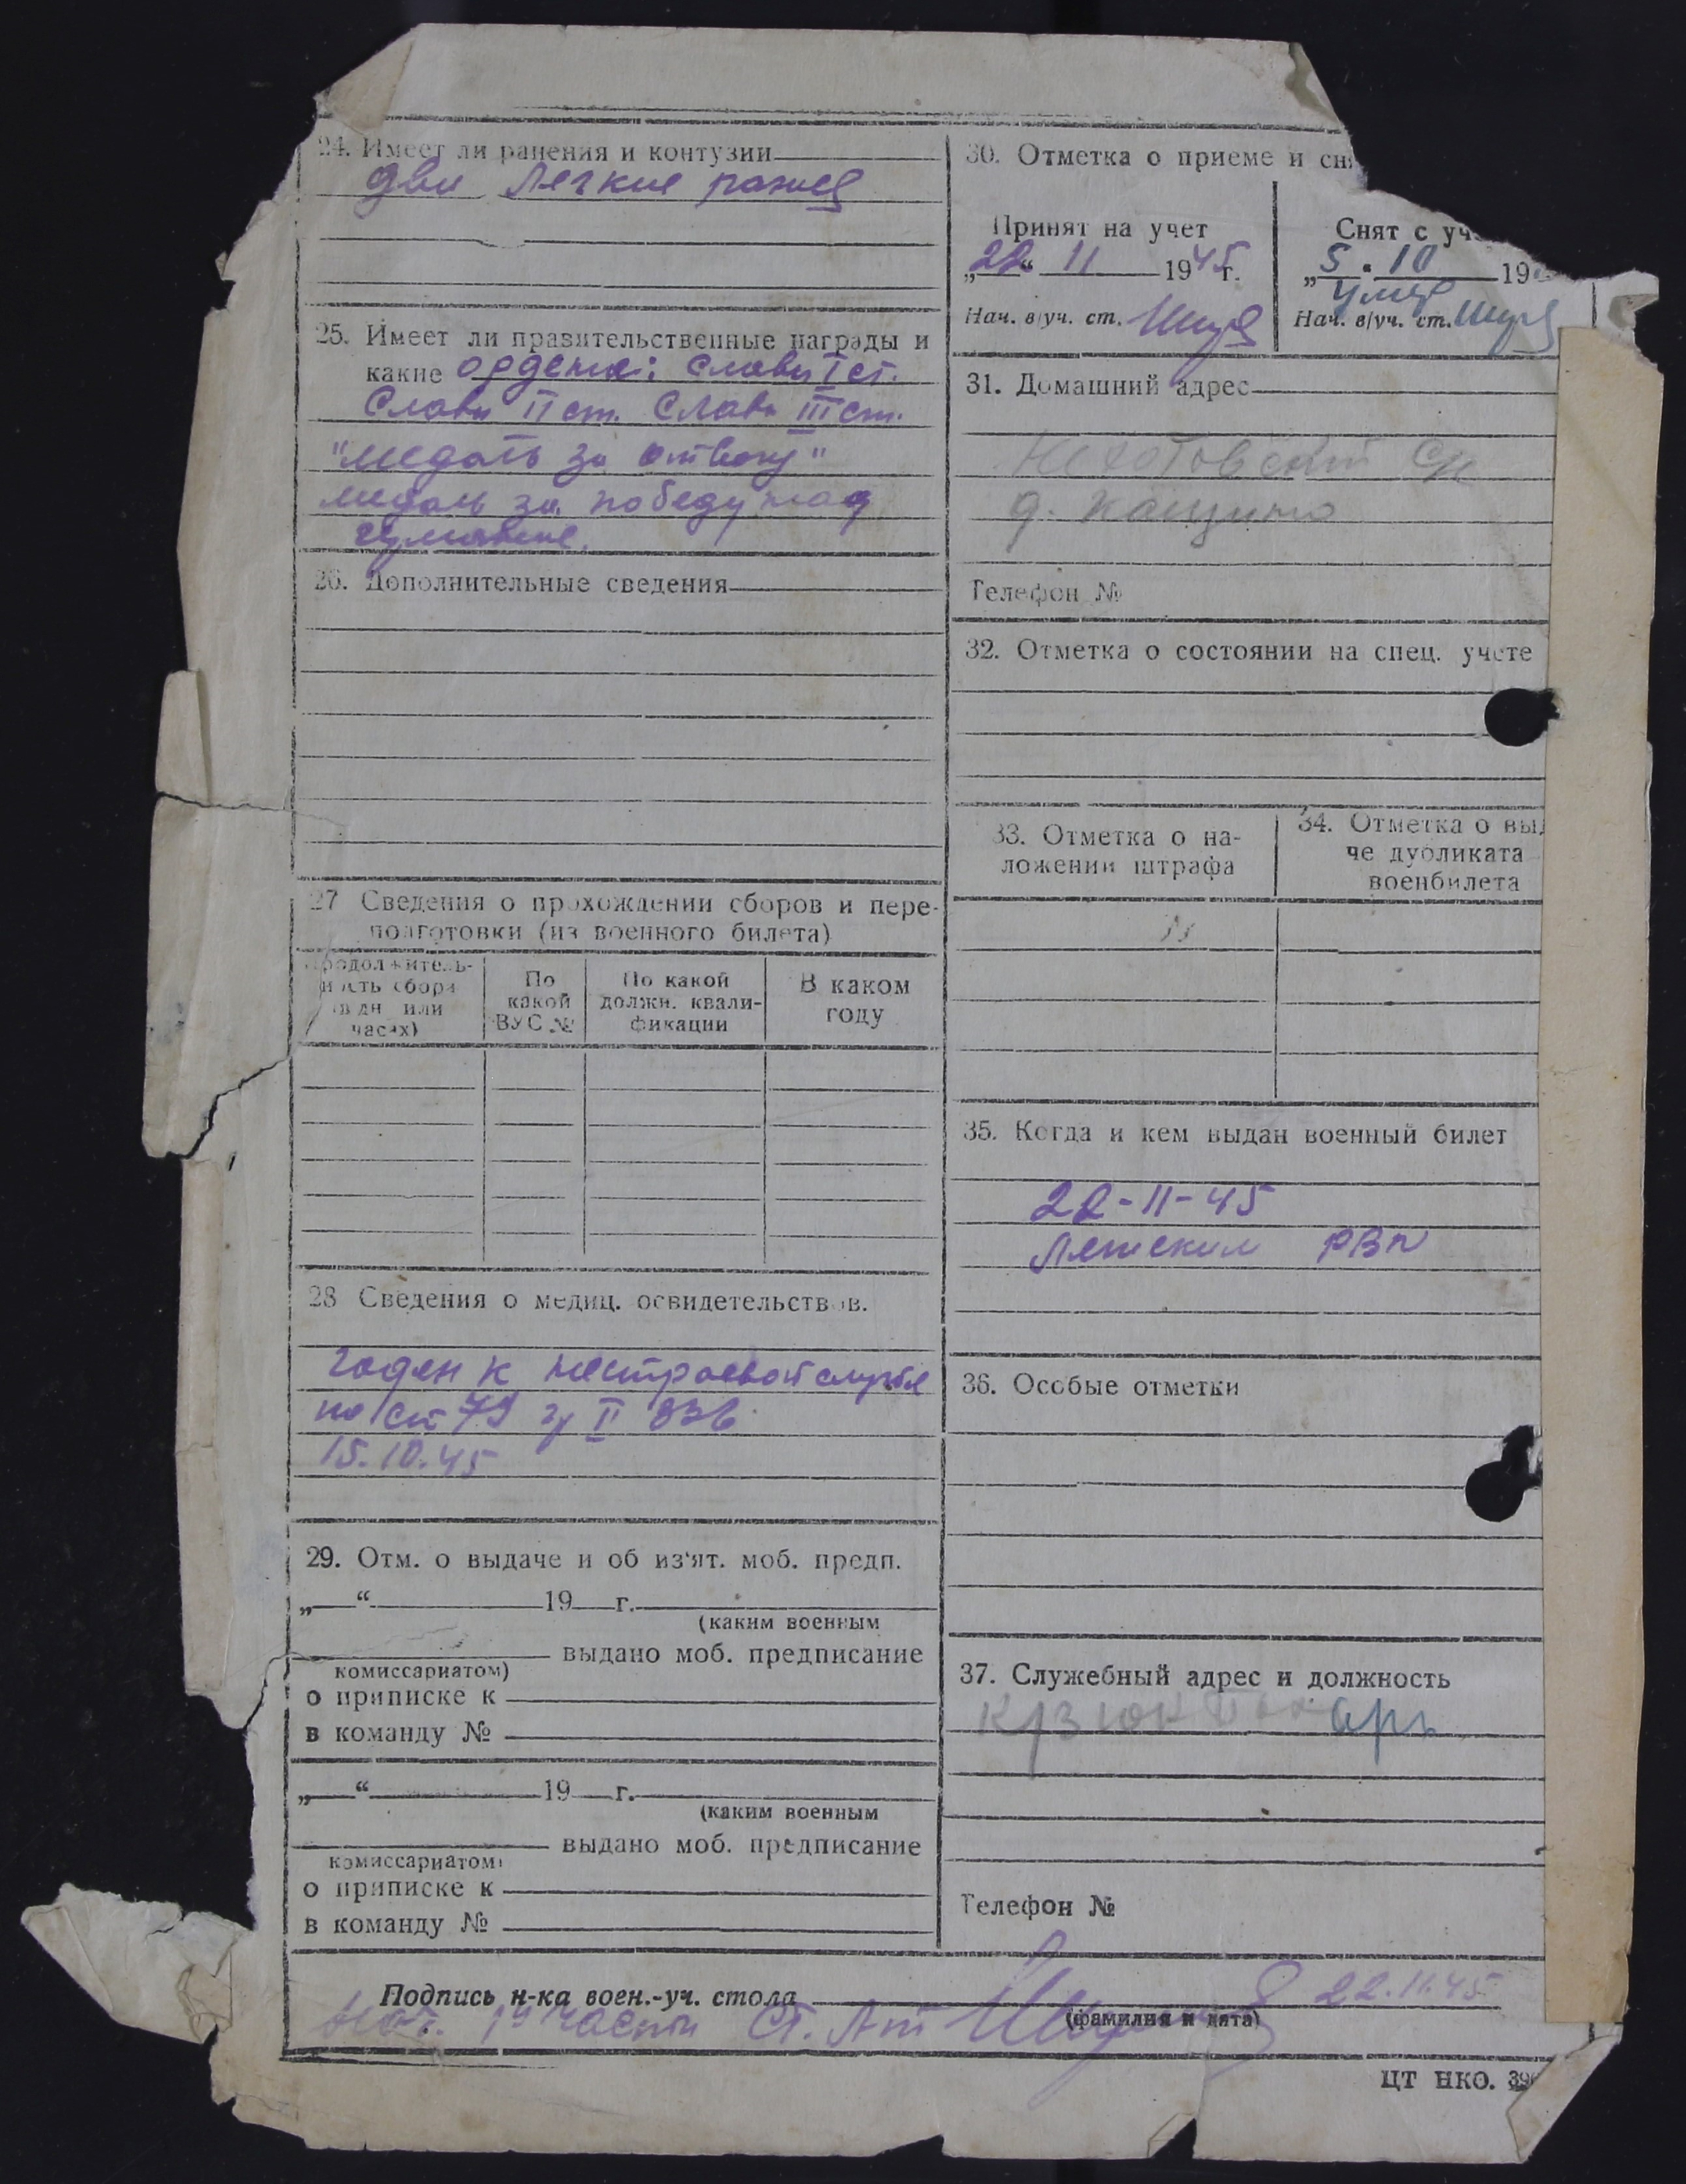 24. Имеет ли ранения и контузии
две легкие
25. Имеет ли правительственные награды и
какие ордена: Славы I ст.
Славы II ст. Славы III ст.
"медаль за отвагу"
медаль за победу над
26. Дополнительные сведения
27 Сведения о прохождении сборов и пере-
подготовки (из военного билета)
Продолжитель-
ность сбора
(в дн или
часах)
По
какой
ВУС №
По какой
должн. квали-
фикации
В каком
году
28 Сведения о медиц. освидетельствов.
годен к нестроевой службе
по ст 79 гр II 336
15.10.45
29. Отм. о выдаче и об из'ят. моб. предп.
„ “ 19 г.
(каким военным
выдано моб. предписание
комиссариатом)
о приписке к
в команду №
„ “ 19 г.
(каким военным
выдано моб. предписание
комиссариатом)
о приписке к
в команду №
30. Отметка о приеме и сн
Принят на учет
„22“ 11 1945 г.
Нач. в/уч. ст.
Снят с уч
„5“ 10 19
Нач. в/уч. ст.
31. Домашний адрес
д. Кащино
Телефон №
32. Отметка о состоянии на спец. учете
33. Отметка о на-
ложении штрафа
34. Отметка о выд
че дубликата
военбилета
35. Когда и кем выдан военный билет
22-11-45
РВК
36. Особые отметки
37. Служебный адрес и должность
Телефон №
Подпись н-ка воен.-уч. стола
22.11.45
(фамилия и дата)
Нач. 1й части Ст. Л-т
ЦТ НКО. 39